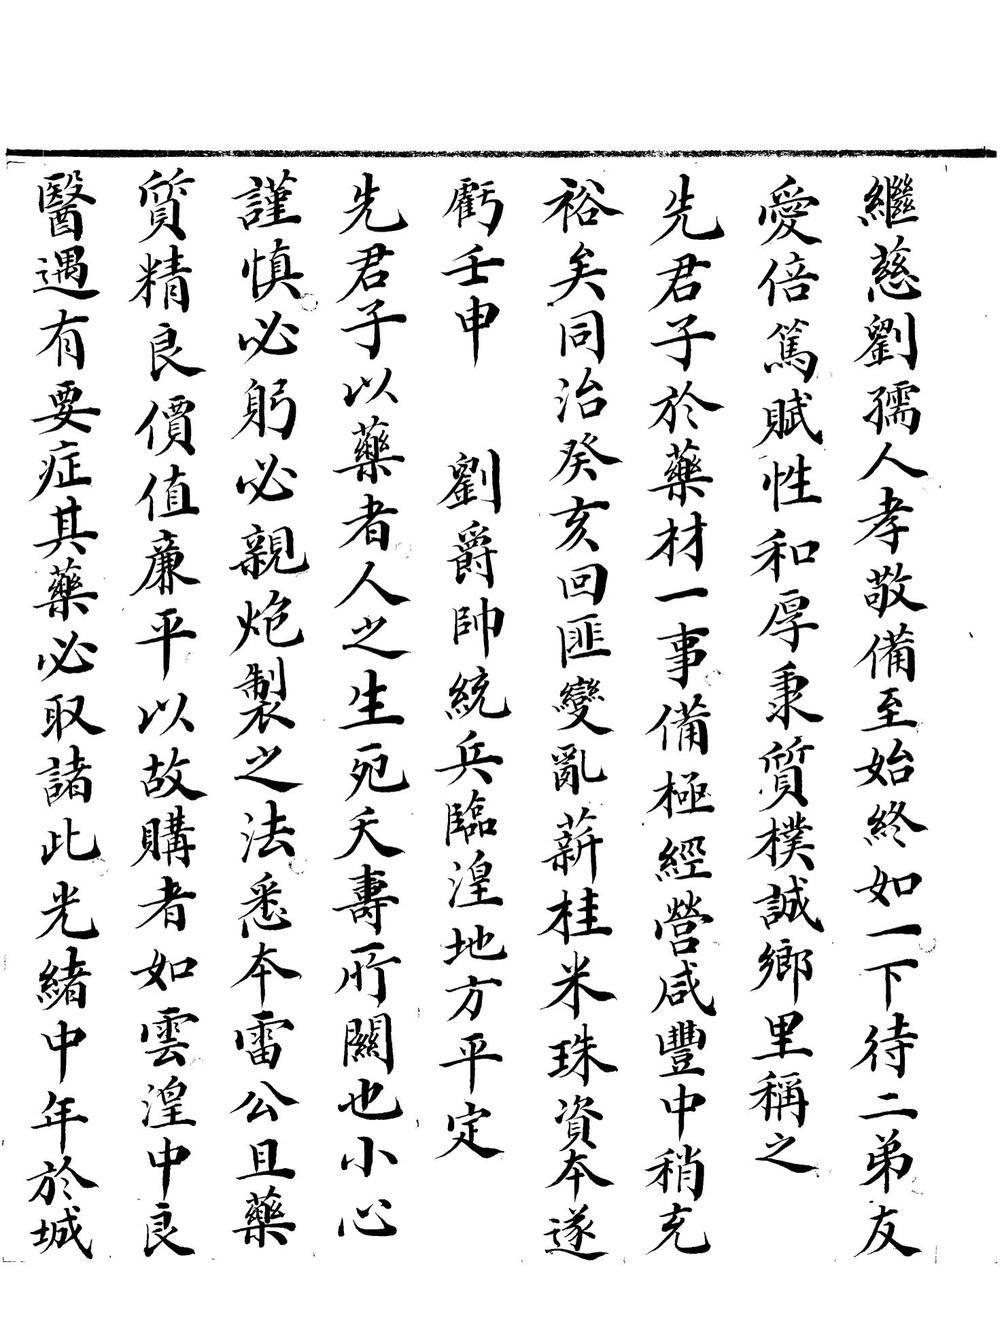 繼慈劉孺人孝敬備至始終如一下待二弟友
愛倍篤賦性和厚秉質樸誠鄉里稱之
先君子於藥材一事備極經營咸豐中稍充
裕矣同治癸亥回匪變亂薪桂米珠資本遂
虧壬申　劉爵帥統兵臨湟地方平定
先君子以藥者人之生死夭壽所關也小心
謹慎必躬必親炮製之法悉本雷公且藥
質精良價值廉平以故購者如雲湟中良
醫遇有要症其藥必取諸此光緒中年於城